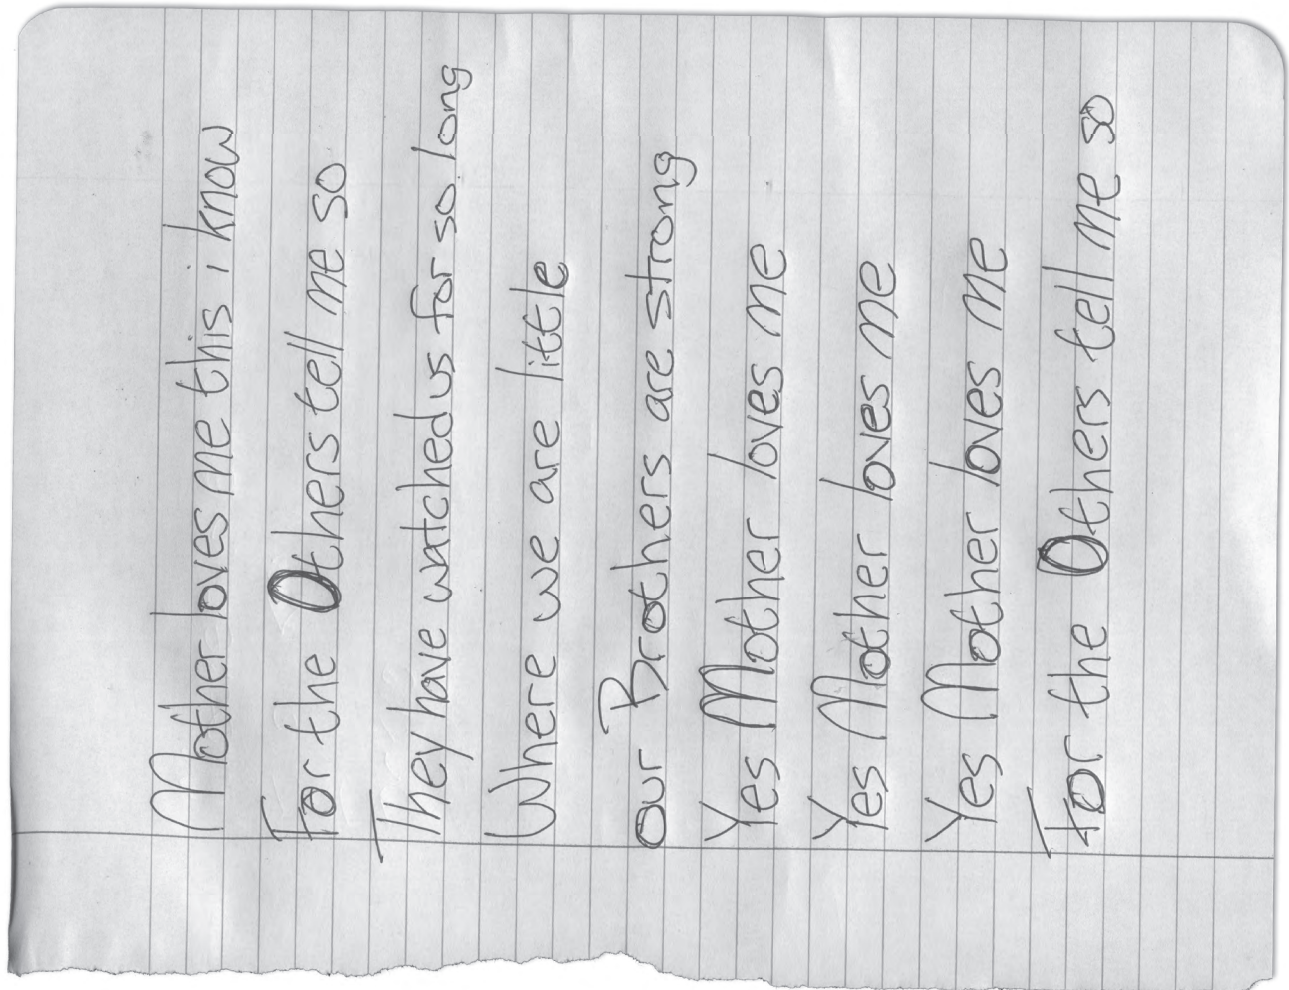 Mother loves me this i know
For the Others tell me so
They have watched us for so long
Where we are little
our Brothers are strong
Yes Mother loves me
Yes Mother loves me
Yes Mother loves me
For the Others tell me so